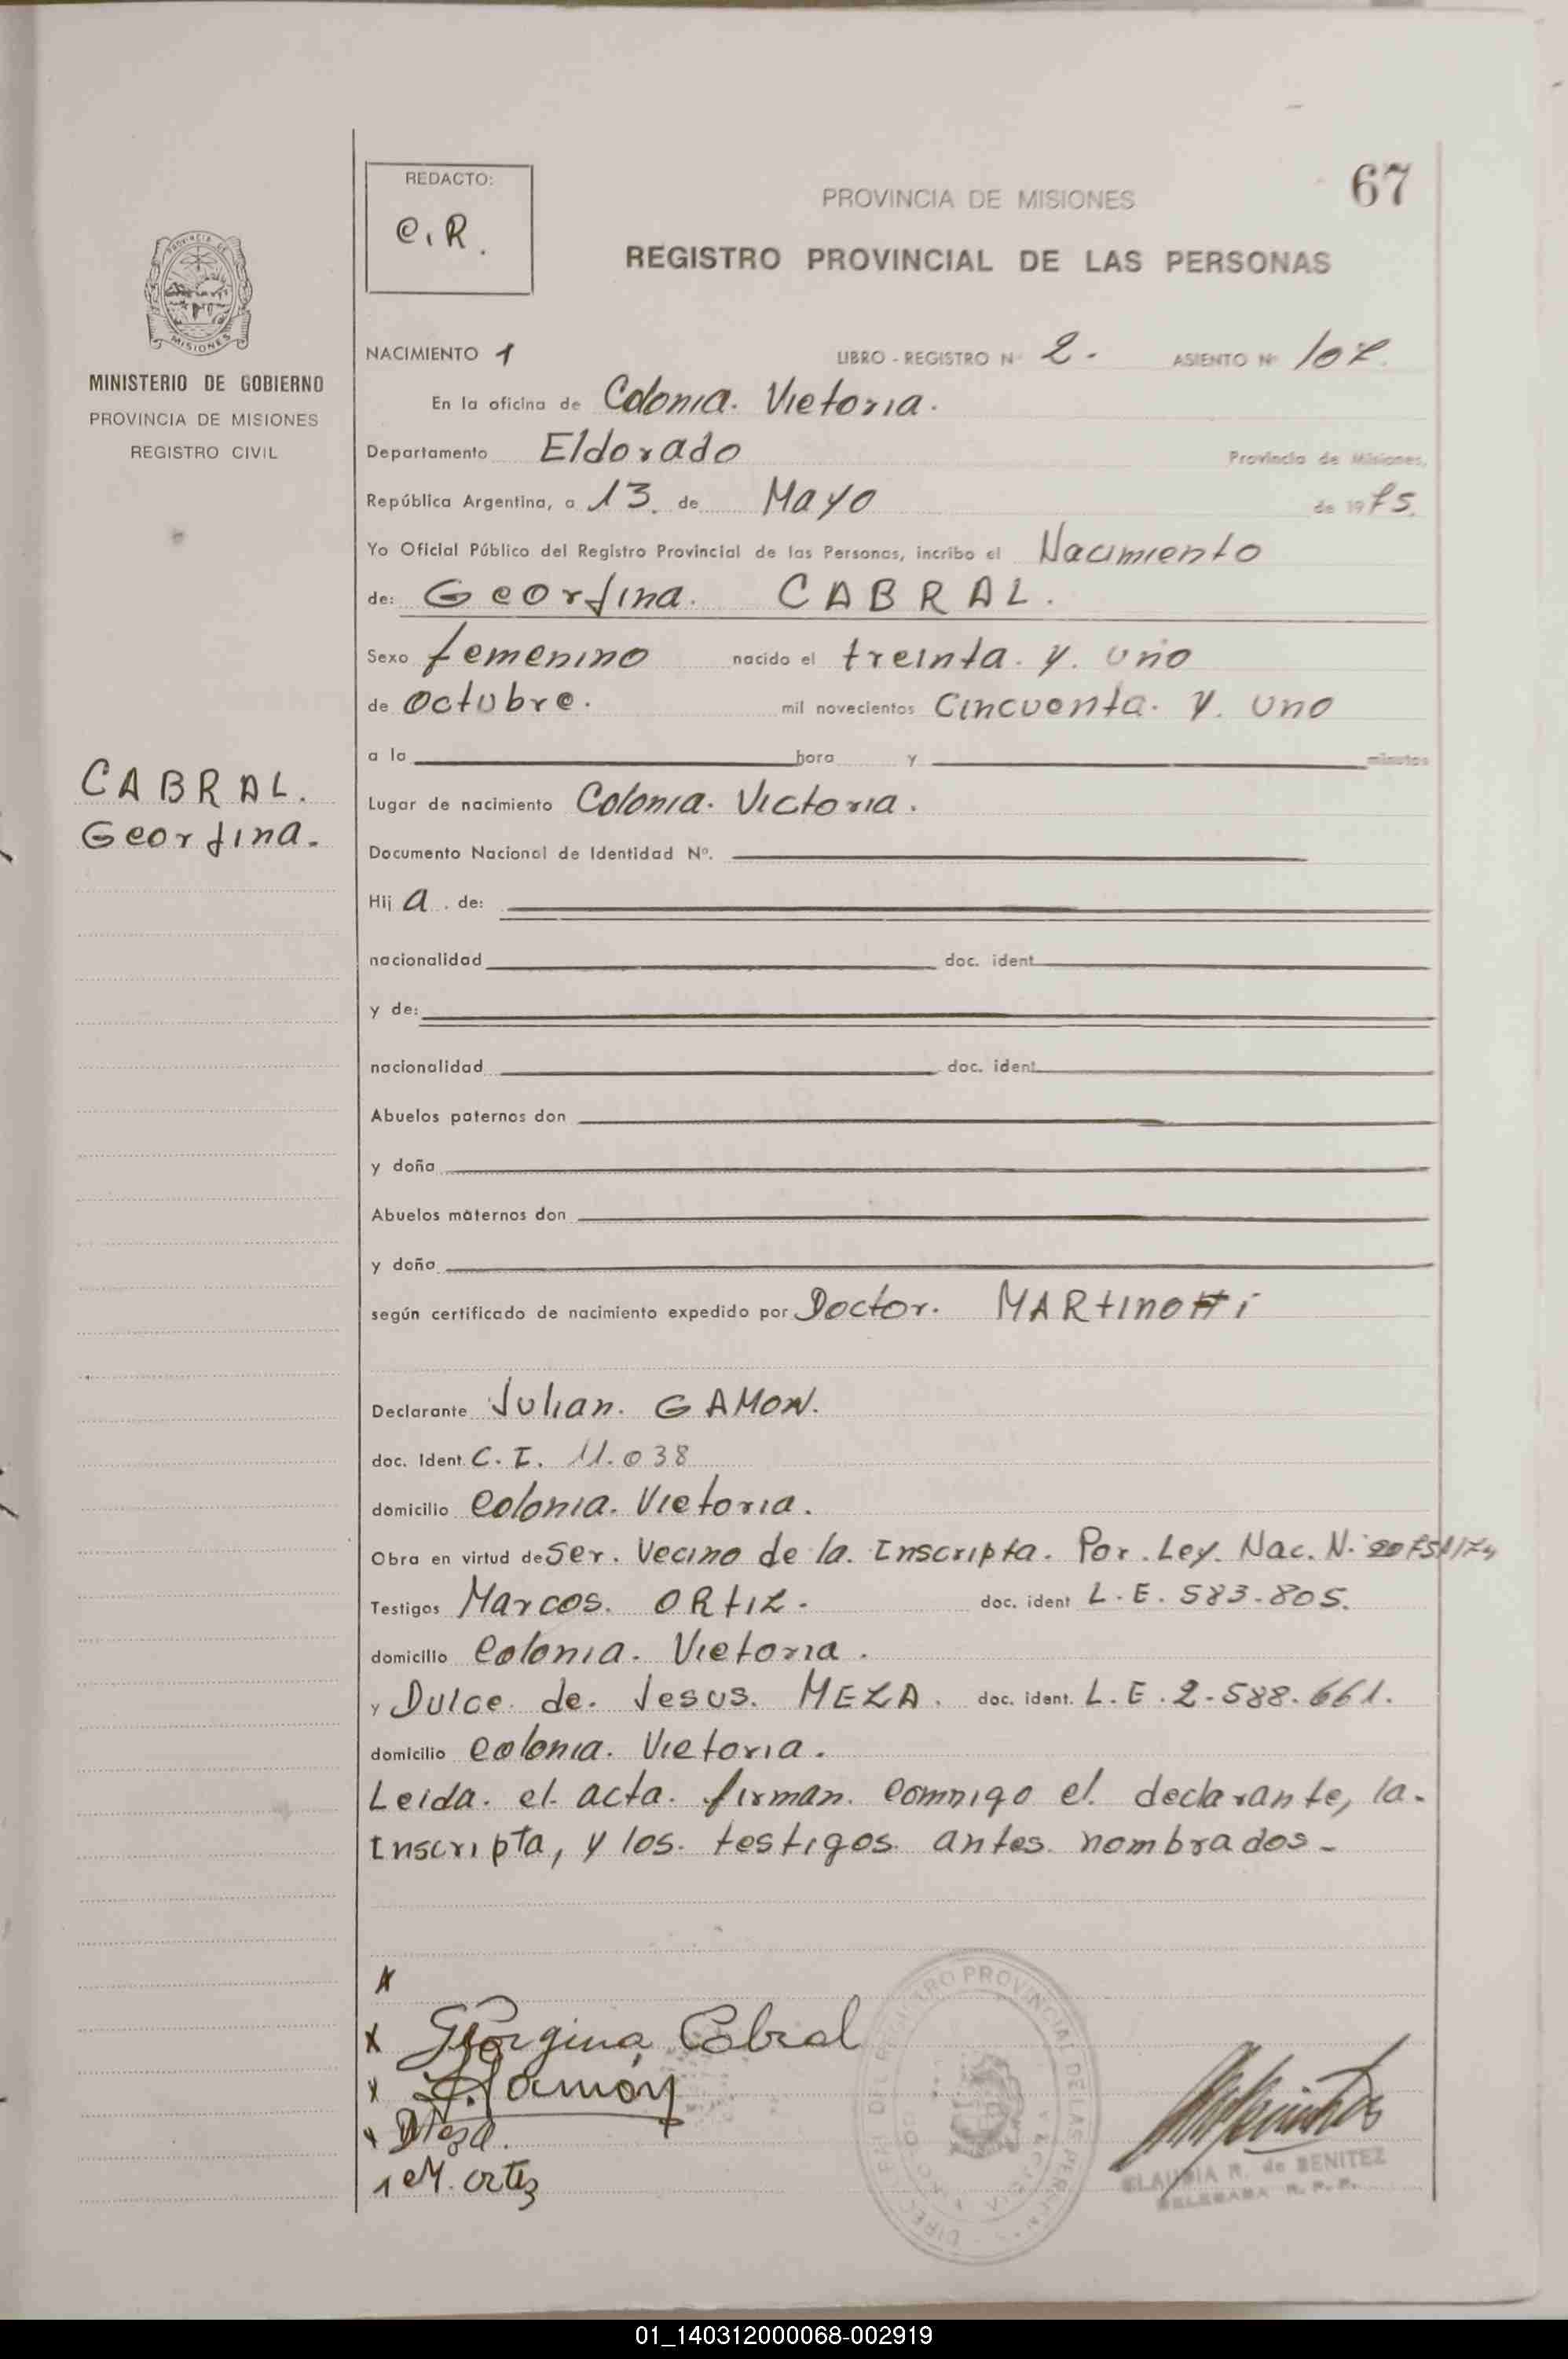 REDACTO:
C.R.
PROVINCIA DE MISIONES
67
REGISTRO PROVINCIAL DE LAS PERSONAS
PROVINCIA DE
MISIONES
MINISTERIO DE GOBIERNO
PROVINCIA DE MISIONES
REGISTRO CIVIL
NACIMIENTO 1 LIBRO - REGISTRO Nº 2. ASIENTO Nº 107.
En la oficina de Colonia. Victoria.
Departamento Eldorado Provincia de Misiones,
República Argentina, a 13. de Mayo de 1975.
Yo Oficial Público del Registro Provincial de las Personas, incribo el Nacimiento
de: Georgina. CABRAL.
Sexo femenino nacido el treinta. y. uno
de octubre. mil novecientos Cincuenta. y. uno
a la hora y minutos
CABRAL.
Georgina.
Lugar de nacimiento Colonia. Victoria.
Documento Nacional de Identidad Nº.
Hij a. de:
nacionalidad doc. ident
y de:
nacionalidad doc. ident
Abuelos paternos don
y doña
Abuelos maternos don
y doña
según certificado de nacimiento expedido por Doctor. MARtinotti
Declarante Julian. GAMON.
doc. Ident. C. I. 11.038
domicilio Colonia. Victoria.
Obra en virtud de Ser. Vecino de la. Inscripta. Por. Ley. Nac. N. 20751/74
Testigos Marcos. ORtiz. doc. ident L. E. 583.805.
domicilio Colonia. Victoria.
y Dulce. de. Jesus. MEZA. doc. ident. L. E. 2.588.661.
domicilio Colonia. Victoria.
Leida. el. acta. firman. Conmigo el. declarante, la.
Inscripta, y los. testigos. antes. nombrados.-
x
x Georgina Cabral
x J. Gamón
x D Meza.
M. ortiz
CLAUDIA R. de BENITEZ
DELEGADA R. P. P.
01_140312000068-002919